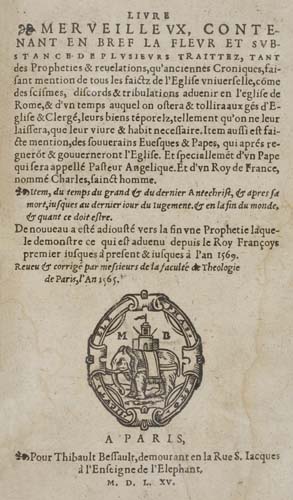 LIVRE
MERVEILLEVX, CONTE-
NANT EN BREF LA FLEVR ET SVB-
STANCE DE PLVSIEVRS TRAITTEZ, TANT
des Propheties & reuelations, qu'anciennes Croniques, fai-
sant mention de tous les faictz de l'Eglise vniuerselle, cõme
des scismes, discords & tribulations aduenir en l'eglise de
Rome, & d'vn temps auquel on ostera & tollira aux gẽs d'E-
glise & Clergé, leurs biens tẽporelz, tellement qu'on ne leur
laissera, que leur viure & habit necessaire. Item aussi est fai-
cte mention, des souuerains Euesques & Papes, qui aprés
regnerõt & gouuerneront l'Eglise. Et specialemẽt d'vn Pape
qui sera appellé Pasteur Angelique. Et d'vn Roy de France,
nommé Charles, sainct homme.
Item, du temps du grand & du dernier Antechrist, & apres sa
mort, iusques au dernier iour du iugement. & en la fin du monde,
& quant ce doit estre.
De nouueau a esté adiousté vers la fin vne Prophetie laque-
le demonstre ce qui est aduenu depuis le Roy Françoys
premier iusques à present & iusques à l'an 1569.
Reueu & corrigé par messieurs de la faculté de Theologie
de Paris, l'An 1565.
M B
A PARIS,
Pour Thibault Bessault, demourant en la Rue S. Iacques
à l'Enseigne de l'Elephant.
M. D. L. XV.